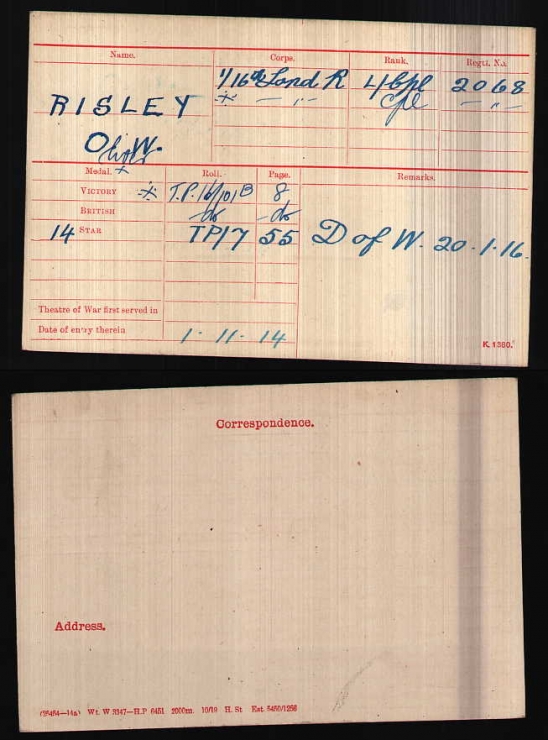 Name. Corps. Rank. Regtl. No.
1/16th Lond R L/Cpl 2068
RISLEY * — „ — Cpl — „ —
O W.
Medal. Roll. Page. Remarks.
VICTORY * T.P.16/101B 8
BRITISH do do
14 STAR TP/7 55 D of W. 20.1.16.
Theatre of War first served in
Date of entry therein 1. 11. 14
K. 1380.
Correspondence.
Address.
Wt. W 3347—H.P 6451 2000m. 10/19 H. St Est.